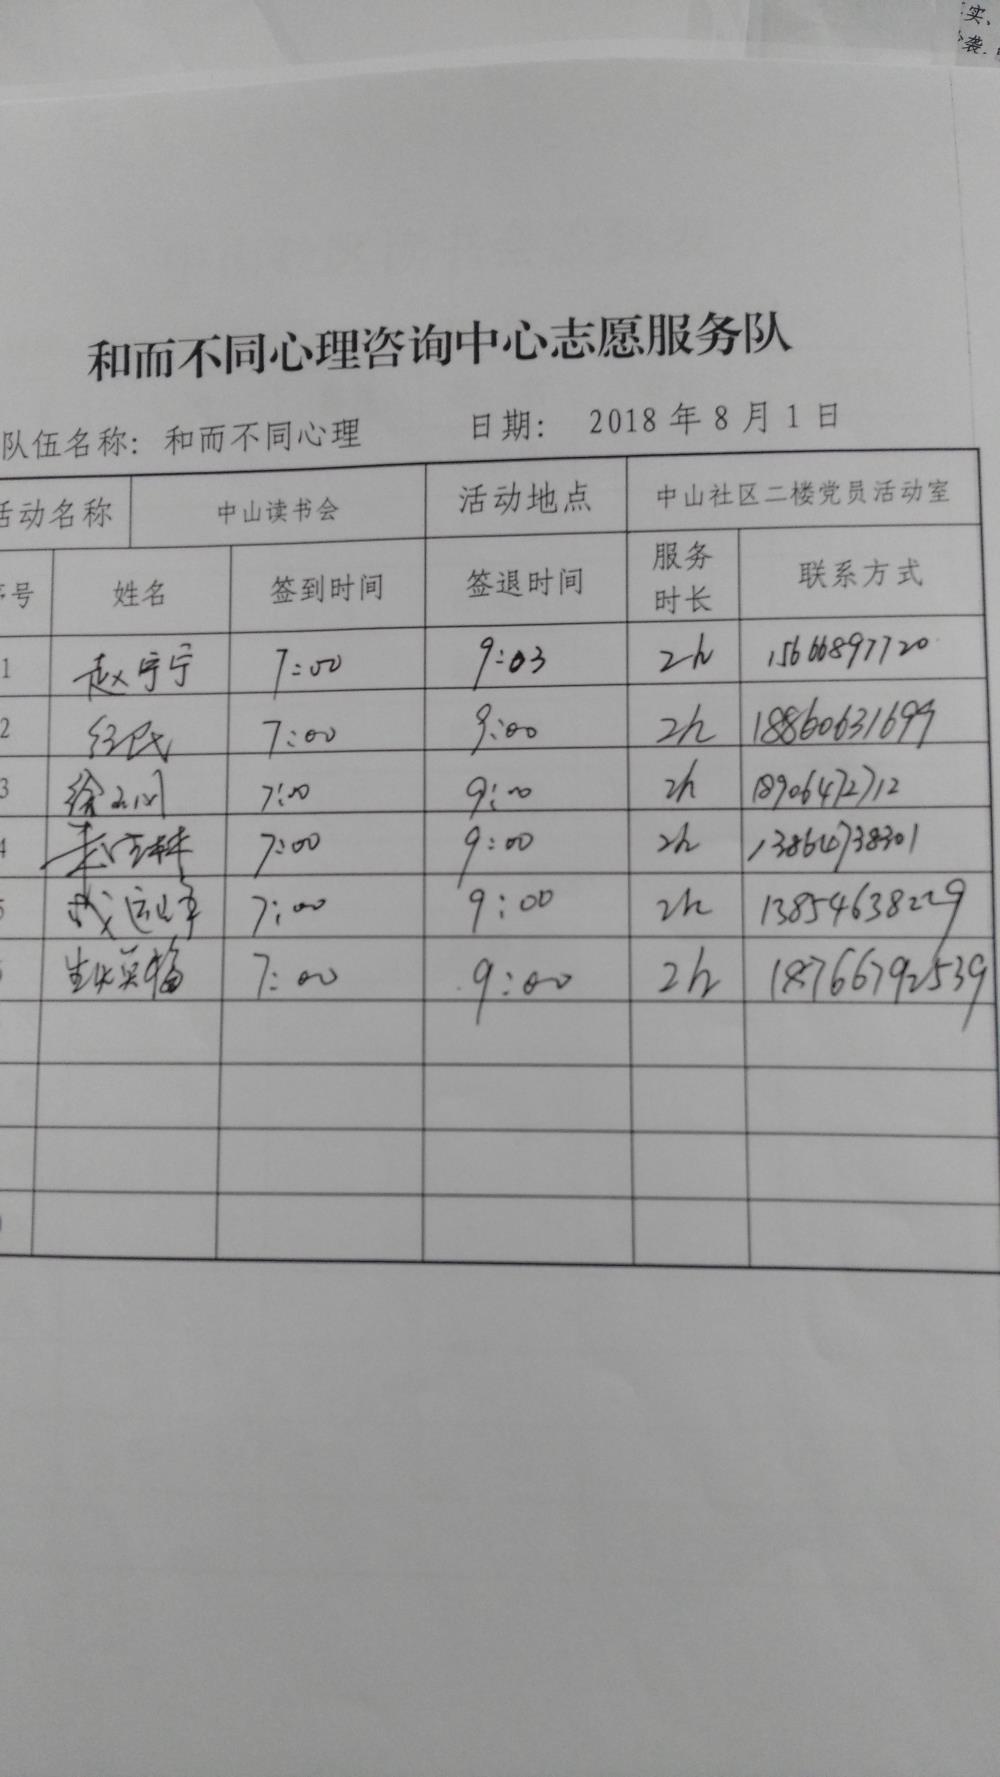 实、
袭.
和而不同心理咨询中心志愿服务队
队伍名称: 和而不同心理 日期: 2018 年 8 月 1 日
活动名称 中山读书会 活动地点 中山社区二楼党员活动室
序号 姓名 签到时间 签退时间 服务时长 联系方式
1 赵宁宁 7:00 9:03 2h 15666897720
2 7:00 9:00 2h 18860631699
3 徐 7:00 9:00 2h 18906472712
4 7:00 9:00 2h 13864738301
5 7:00 9:00 2h 13854638229
6 7:00 9:00 2h 18766792539